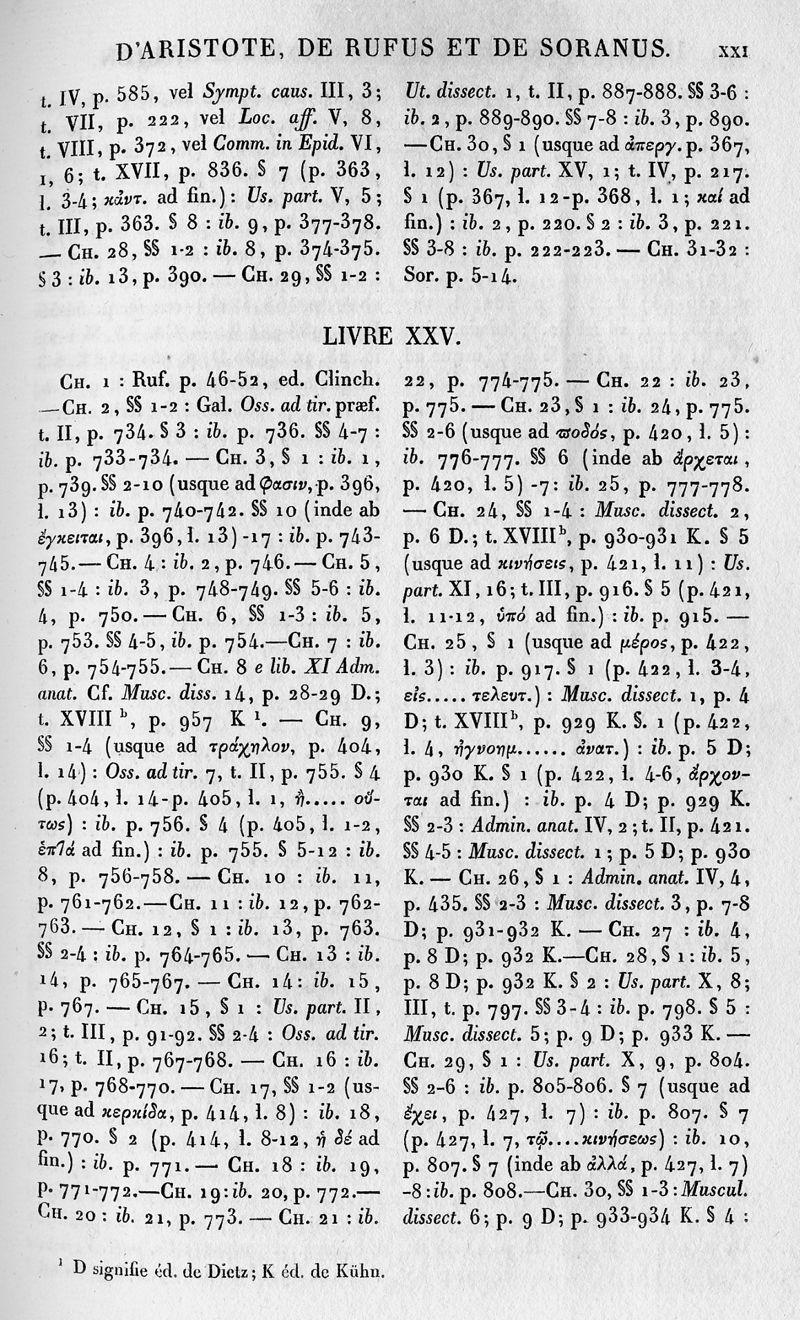 D'ARISTOTE, DE RUFUS ET DE SORANUS. XXI
t. IV, p. 585, vel Sympt. caus. III, 3;
t. VII, p. 222, vel Loc. aff. V, 8,
t. VIII, p. 372, vel Comm. in Epid. VI,
1, 6; t. XVII, p. 836. § 7 (p. 363,
l. 3-4; κἀντ. ad fin.): Us. part. V, 5;
t. III, p. 363. § 8 : ib. 9, p. 377-378.
— CH. 28, §§ 1-2 : ib. 8, p. 374-375.
§ 3 : ib. 13, p. 390. — CH. 29, §§ 1-2 :
Ut. dissect. 1, t. II, p. 887-888. §§ 3-6 :
ib. 2, p. 889-890. §§ 7-8 : ib. 3, p. 890.
— CH. 30, § 1 (usque ad ἀπεργ. p. 367,
l. 12) : Us. part. XV, 1; t. IV, p. 217.
§ 1 (p. 367, l. 12-p. 368, l. 1; καί ad
fin.) : ib. 2, p. 220. § 2 : ib. 3, p. 221.
§§ 3-8 : ib. p. 222-223. — CH. 31-32 :
Sor. p. 5-14.
LIVRE XXV.
CH. 1 : Ruf. p. 46-52, ed. Clinch.
— CH. 2, §§ 1-2 : Gal. Oss. ad tir. præf.
t. II, p. 734. § 3 : ib. p. 736. §§ 4-7 :
ib. p. 733-734. — CH. 3, § 1 : ib. 1,
p. 739. §§ 2-10 (usque ad φασιν, p. 396,
l. 13) : ib. p. 740-742. §§ 10 (inde ab
ἔγκειται, p. 396, l. 13) -17 : ib. p. 743-
745. — CH. 4 : ib. 2, p. 746. — CH. 5,
§§ 1-4 : ib. 3, p. 748-749. §§ 5-6 : ib.
4, p. 750. — CH. 6, §§ 1-3 : ib. 5,
p. 753. §§ 4-5, ib. p. 754. — CH. 7 : ib.
6, p. 754-755. — CH. 8 e lib. XI Adm.
anat. Cf. Musc. diss. 14, p. 28-29 D.;
t. XVIII b, p. 957 K 1. — CH. 9,
§§ 1-4 (usque ad τράχηλον, p. 404,
l. 14) : Oss. ad tir. 7, t. II, p. 755. § 4
(p. 404, l. 14-p. 405, l. 1, ἤ..... οὕ-
τως) : ib. p. 756. § 4 (p. 405, l. 1-2,
ἑπτά ad fin.) : ib. p. 755. § 5-12 : ib.
8, p. 756-758. — CH. 10 : ib. 11,
p. 761-762. — CH. 11 : ib. 12, p. 762-
763. — CH. 12, § 1 : ib. 13, p. 763.
§§ 2-4 : ib. p. 764-765. — CH. 13 : ib.
14, p. 765-767. — CH. 14 : ib. 15,
p. 767. — CH. 15, § 1 : Us. part. II,
2; t. III, p. 91-92. §§ 2-4 : Oss. ad tir.
16; t. II, p. 767-768. — CH. 16 : ib.
17, p. 768-770. — CH. 17, §§ 1-2 (us-
que ad κερκίδα, p. 414, l. 8) : ib. 18,
p. 770. § 2 (p. 414, l. 8-12, ἡ δέ ad
fin.) : ib. p. 771. — CH. 18 : ib. 19,
p. 771-772. — CH. 19 : ib. 20, p. 772. —
CH. 20 : ib. 21, p. 773. — CH. 21 : ib.
22, p. 774-775. — CH. 22 : ib. 23,
p. 775. — CH. 23, § 1 : ib. 24, p. 775.
§§ 2-6 (usque ad ποδός, p. 420, l. 5) :
ib. 776-777. §§ 6 (inde ab ἄρχεται,
p. 420, l. 5) -7 : ib. 25, p. 777-778.
— CH. 24, §§ 1-4 : Musc. dissect. 2,
p. 6 D.; t. XVIII b, p. 930-931 K. § 5
(usque ad κινήσεις, p. 421, l. 11) : Us.
part. XI, 16; t. III, p. 916. § 5 (p. 421,
l. 11-12, ὑπό ad fin.) : ib. p. 915. —
CH. 25, § 1 (usque ad μέρος, p. 422,
l. 3) : ib. p. 917. § 1 (p. 422, l. 3-4,
εἰς..... τελευτ.) : Musc. dissect. 1, p. 4
D; t. XVIII b, p. 929 K. §. 1 (p. 422,
l. 4, ἠγνοημ...... ἀνατ.) : ib. p. 5 D;
p. 930 K. § 1 (p. 422, l. 4-6, ἄρχον-
ται ad fin.) : ib. p. 4 D; p. 929 K.
§§ 2-3 : Admin. anat. IV, 2; t. II, p. 421.
§§ 4-5 : Musc. dissect. 1; p. 5 D; p. 930
K. — CH. 26, § 1 : Admin. anat. IV, 4,
p. 435. §§ 2-3 : Musc. dissect. 3, p. 7-8
D; p. 931-932 K. — CH. 27 : ib. 4,
p. 8 D; p. 932 K. — CH. 28, § 1 : ib. 5,
p. 8 D; p. 932 K. § 2 : Us. part. X, 8;
III, t. p. 797. §§ 3-4 : ib. p. 798. § 5 :
Musc. dissect. 5; p. 9 D; p. 933 K. —
CH. 29, § 1 : Us. part. X, 9, p. 804.
§§ 2-6 : ib. p. 805-806. § 7 (usque ad
ἔχει, p. 427, l. 7) : ib. p. 807. § 7
(p. 427, l. 7, τῷ.... κινήσεως) : ib. 10,
p. 807. § 7 (inde ab ἀλλά, p. 427, l. 7)
-8 : ib. p. 808. — CH. 30, §§ 1-3 : Muscul.
dissect. 6; p. 9 D; p. 933-934 K. § 4 :
1 D signifie éd. de Dietz; K éd. de Kühn.